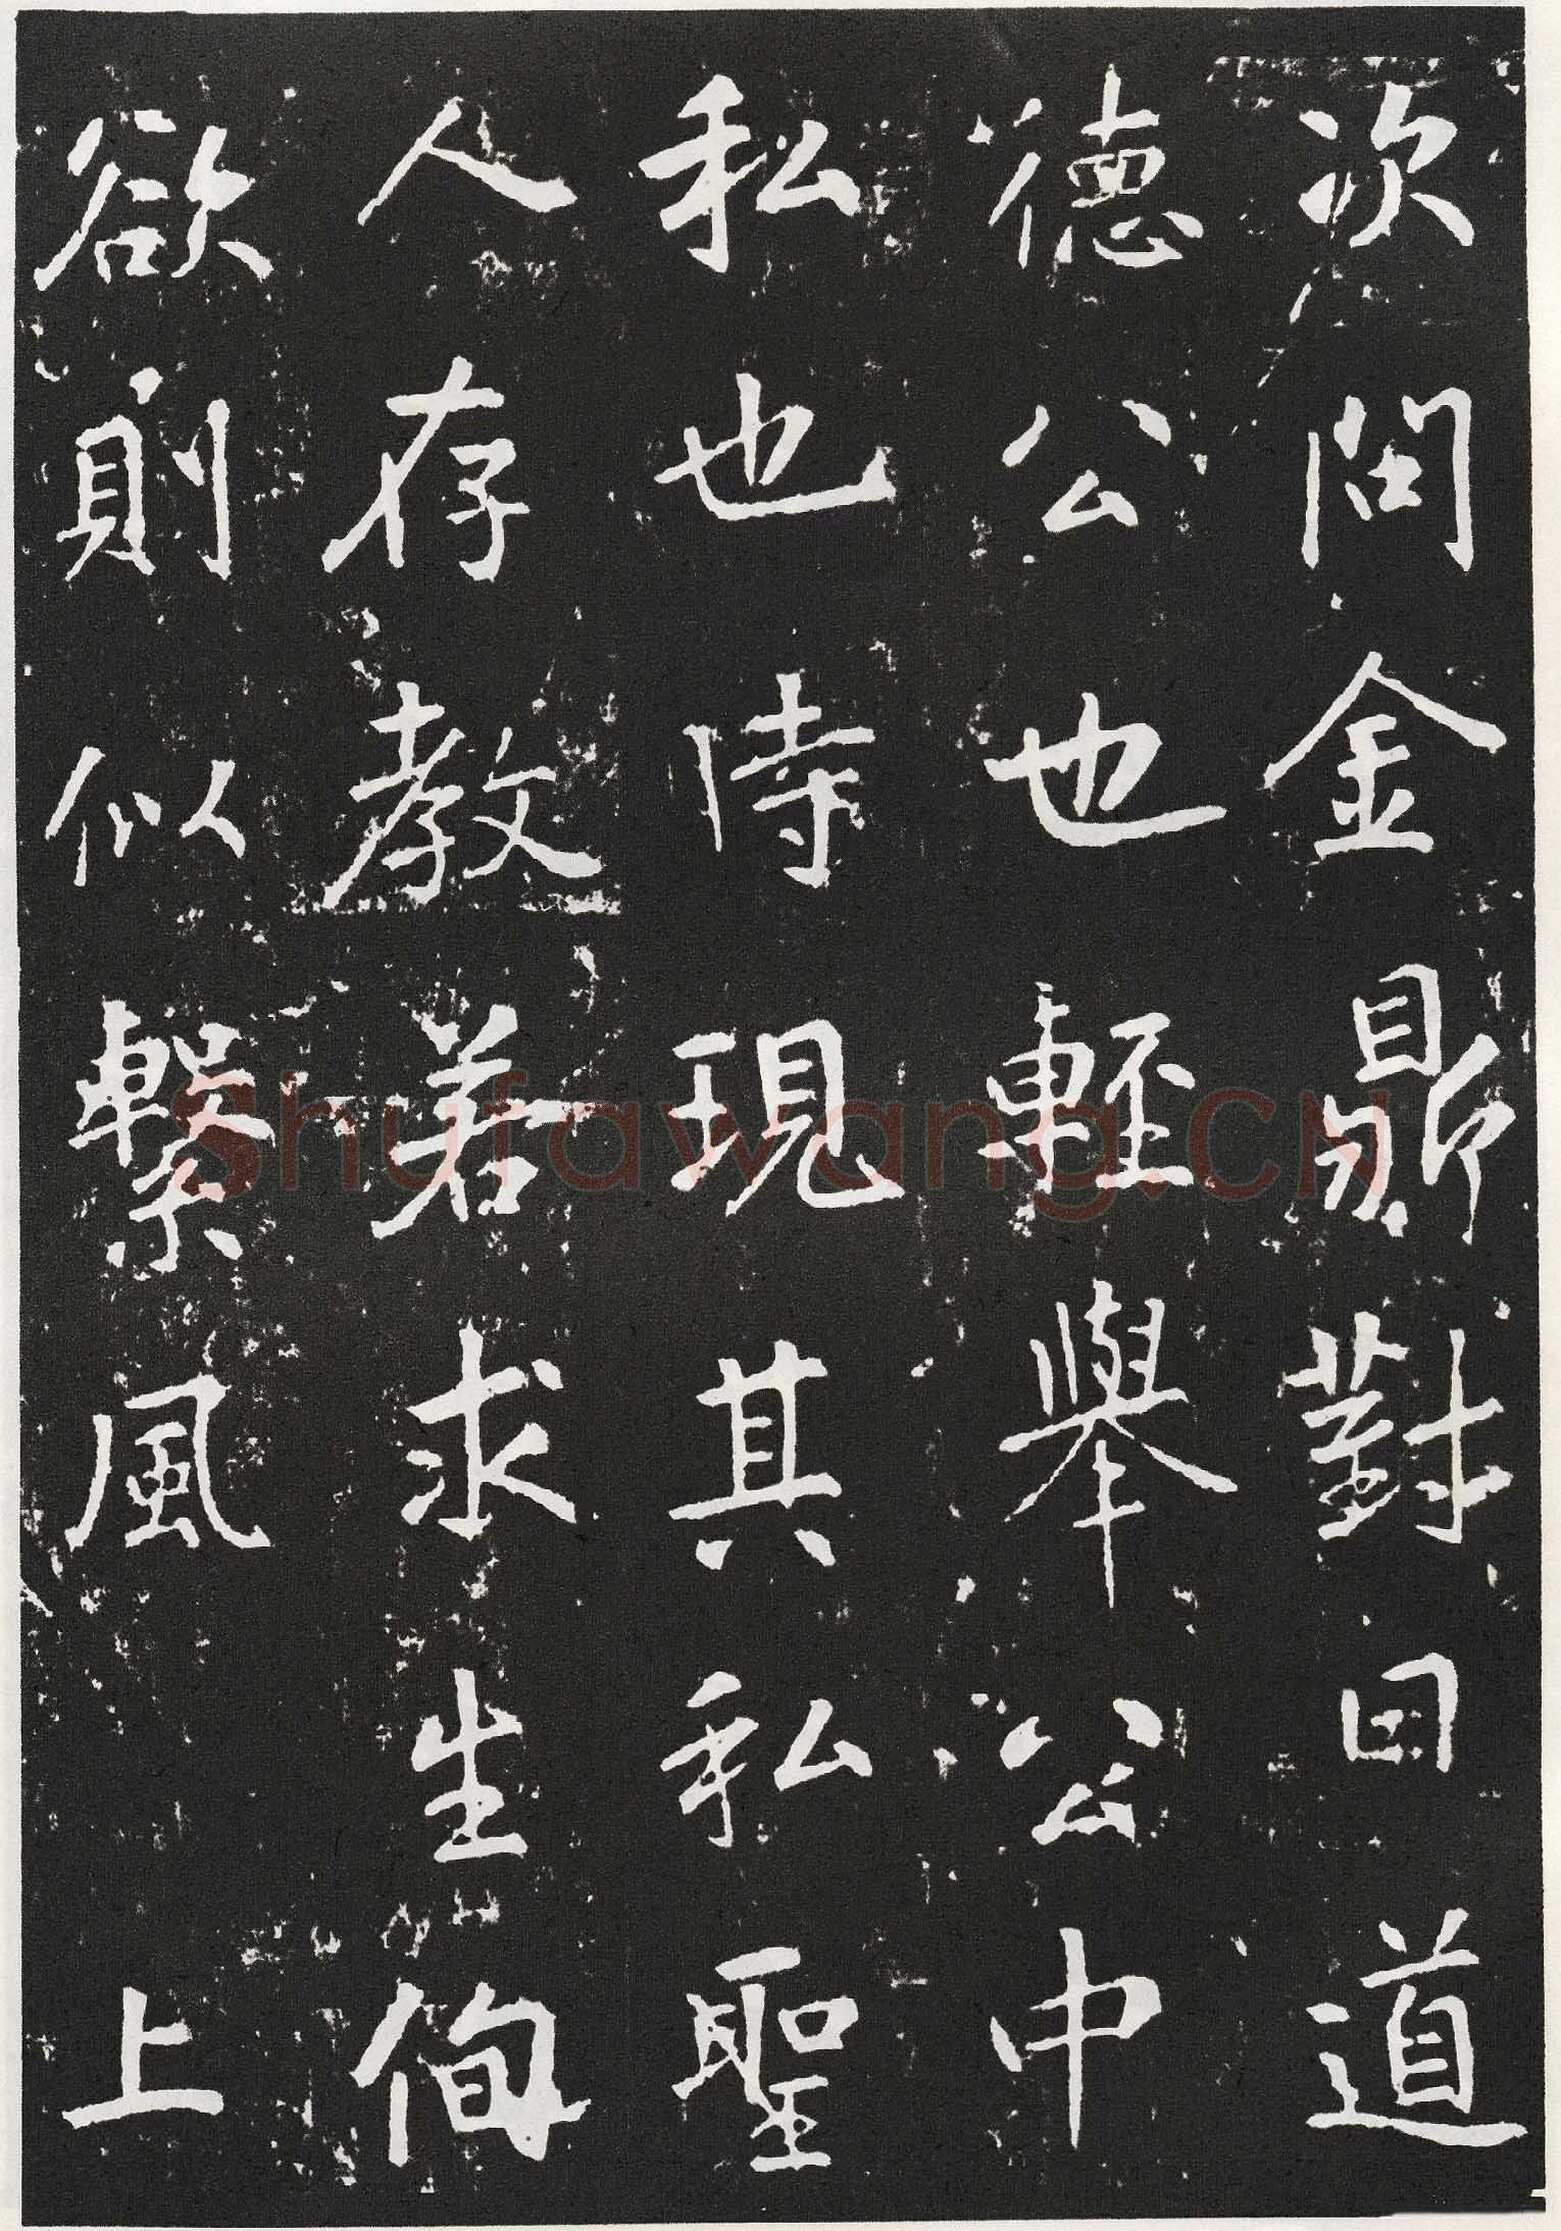 次問金鼎對曰道
德公也輕舉公中
私也時現其私聖
人存教若求生徇
欲則似繫風 上
Shufawang.CN